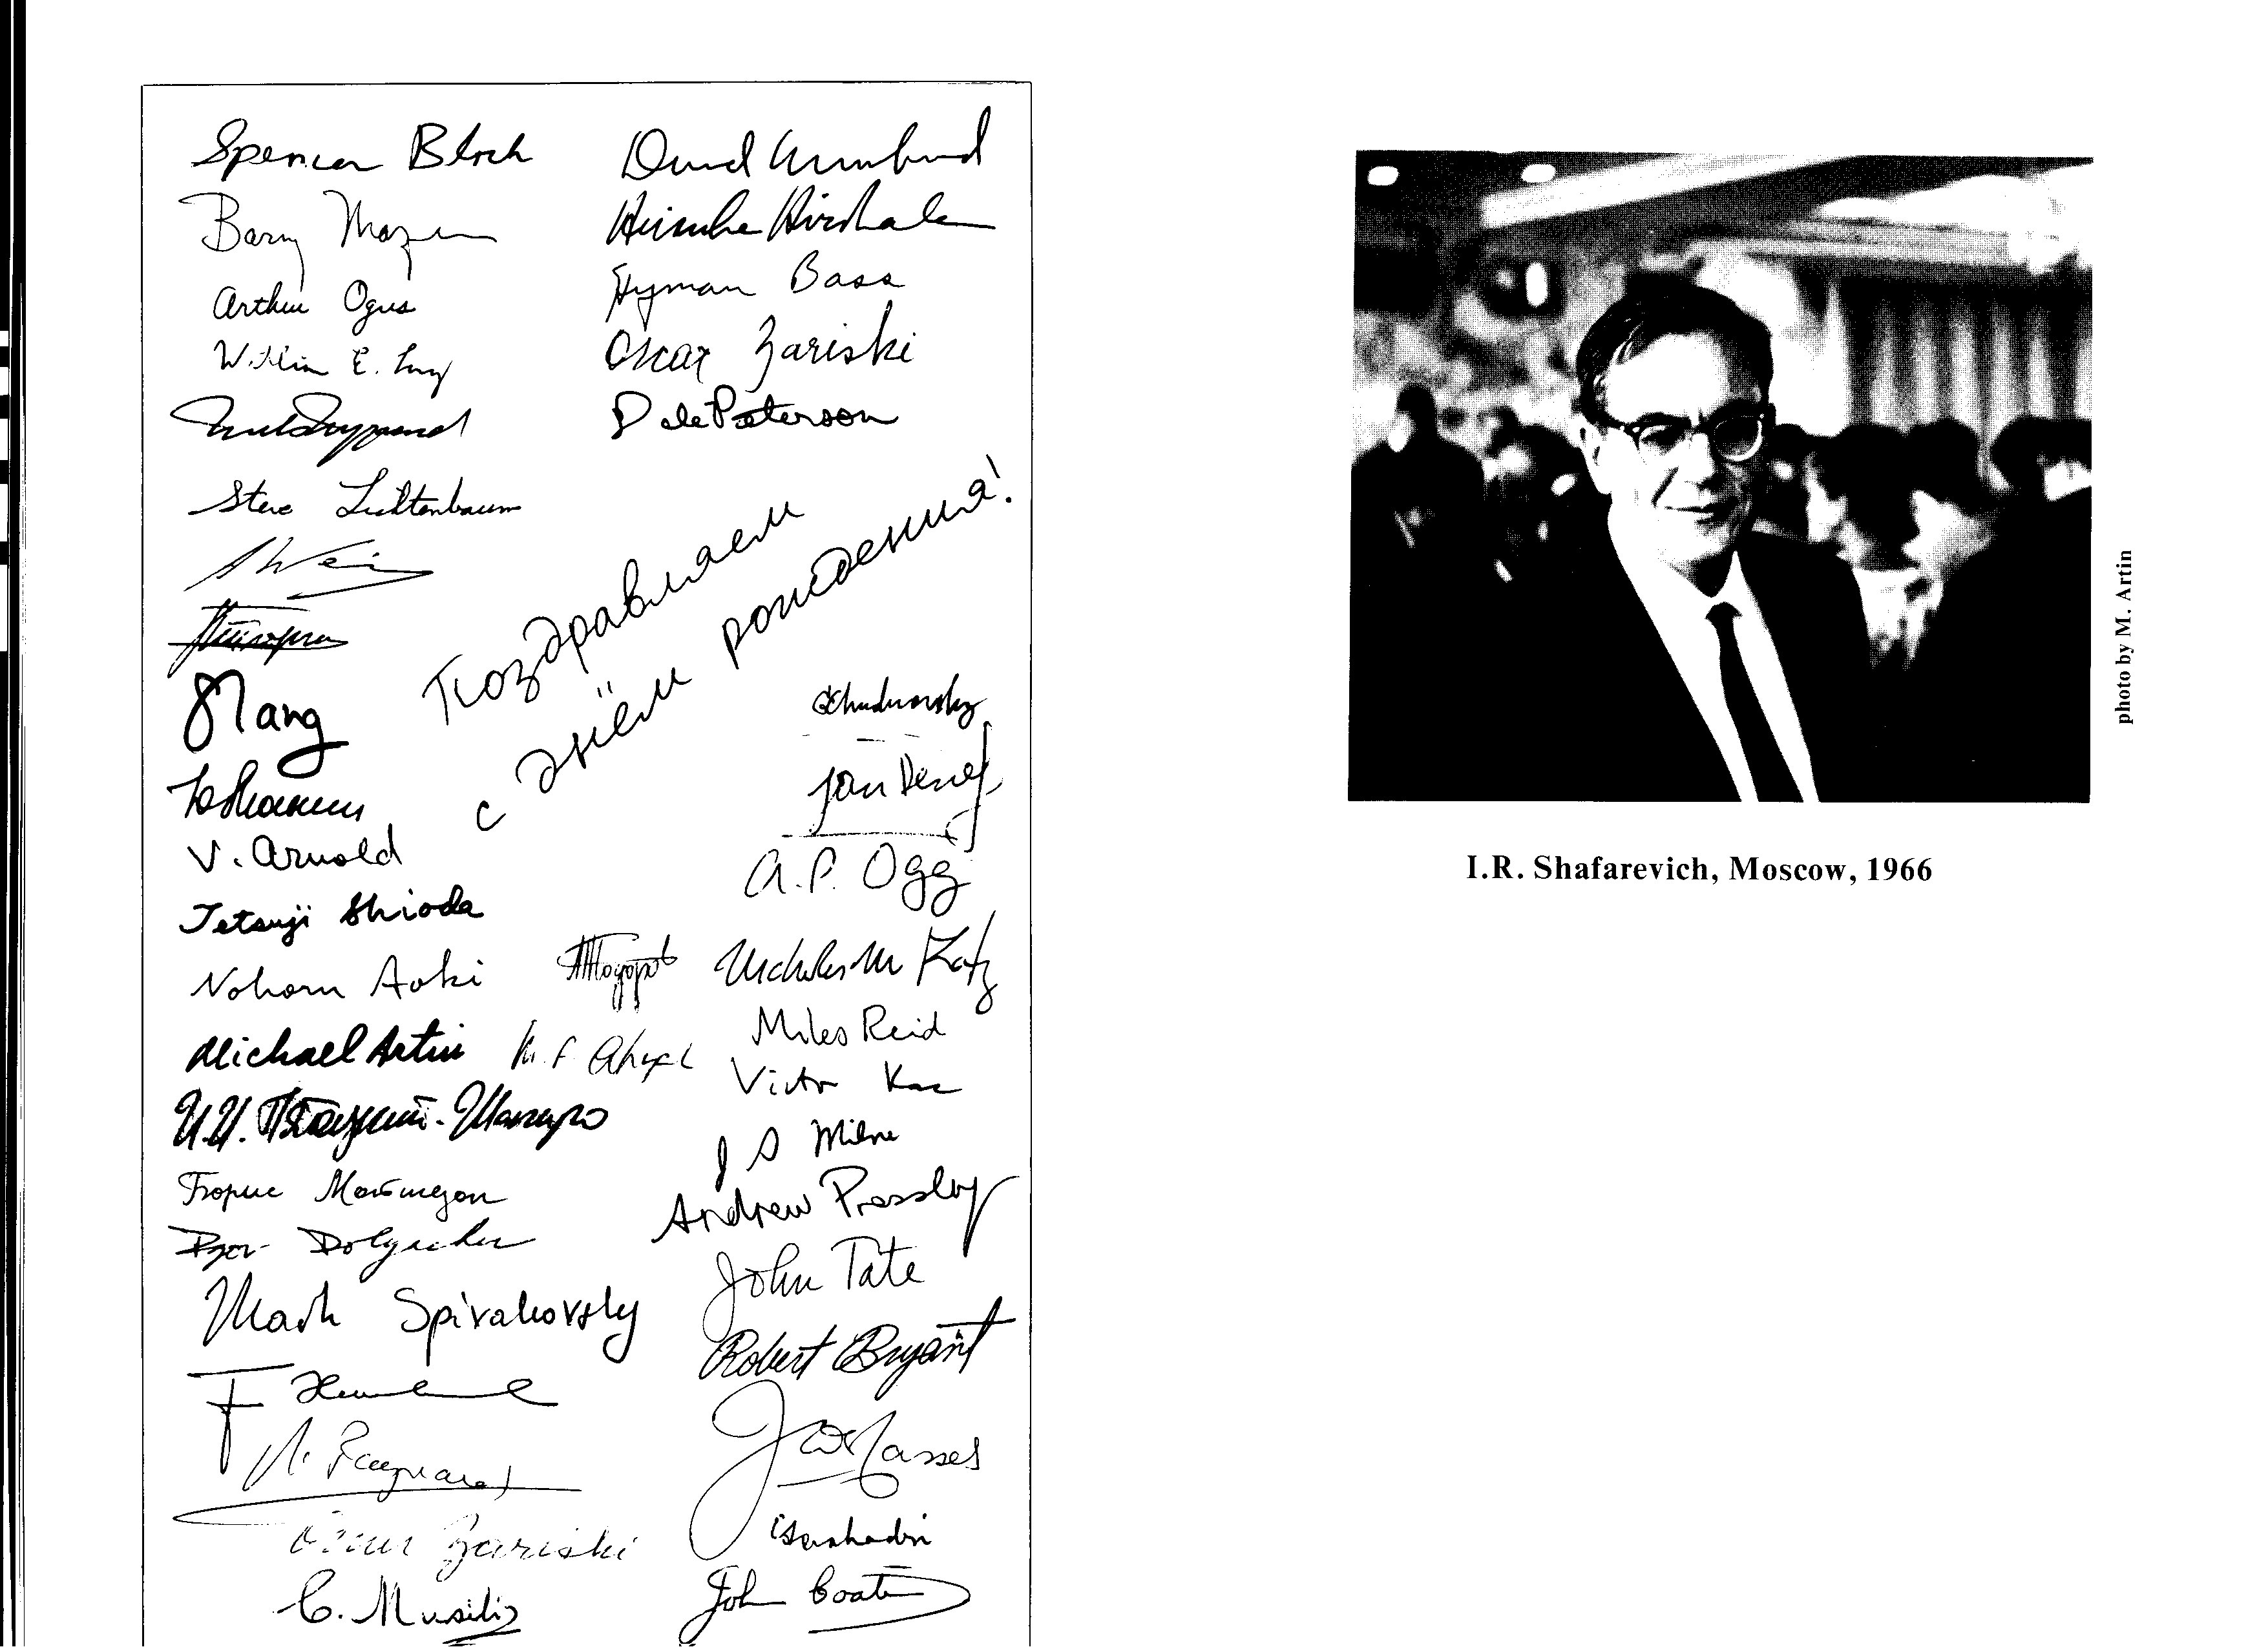 Spencer Bloch
David Mumford
Barry Mazur
Heisuke Hironaka
Arthur Ogus
Hyman Bass
William E. Lang
Oscar Zariski
Dale Peterson
Steve Lichtenbaum
A Weil
Поздравляем
с днём рождения!
SLang
Chudnovsky
ЮМанин
Jan Denef
V. Arnold
A.P. Ogg
Tetsuji Shioda
Noboru Aoki
АТодоров
Nicholas M Katz
Michael Artin
Miles Reid
Victor Kac
И.И. Пятецкий-Шапиро
J S Milne
Борис Мойшезон
Andrew Pressley
Igor Dolgachev
John Tate
Mark Spivakovsky
Robert Bryant
F
M. Raynaud
JWSCassels
Oscar Zariski
CSeshadri
C. Musili
John Coates
photo by M. Artin
I.R. Shafarevich, Moscow, 1966